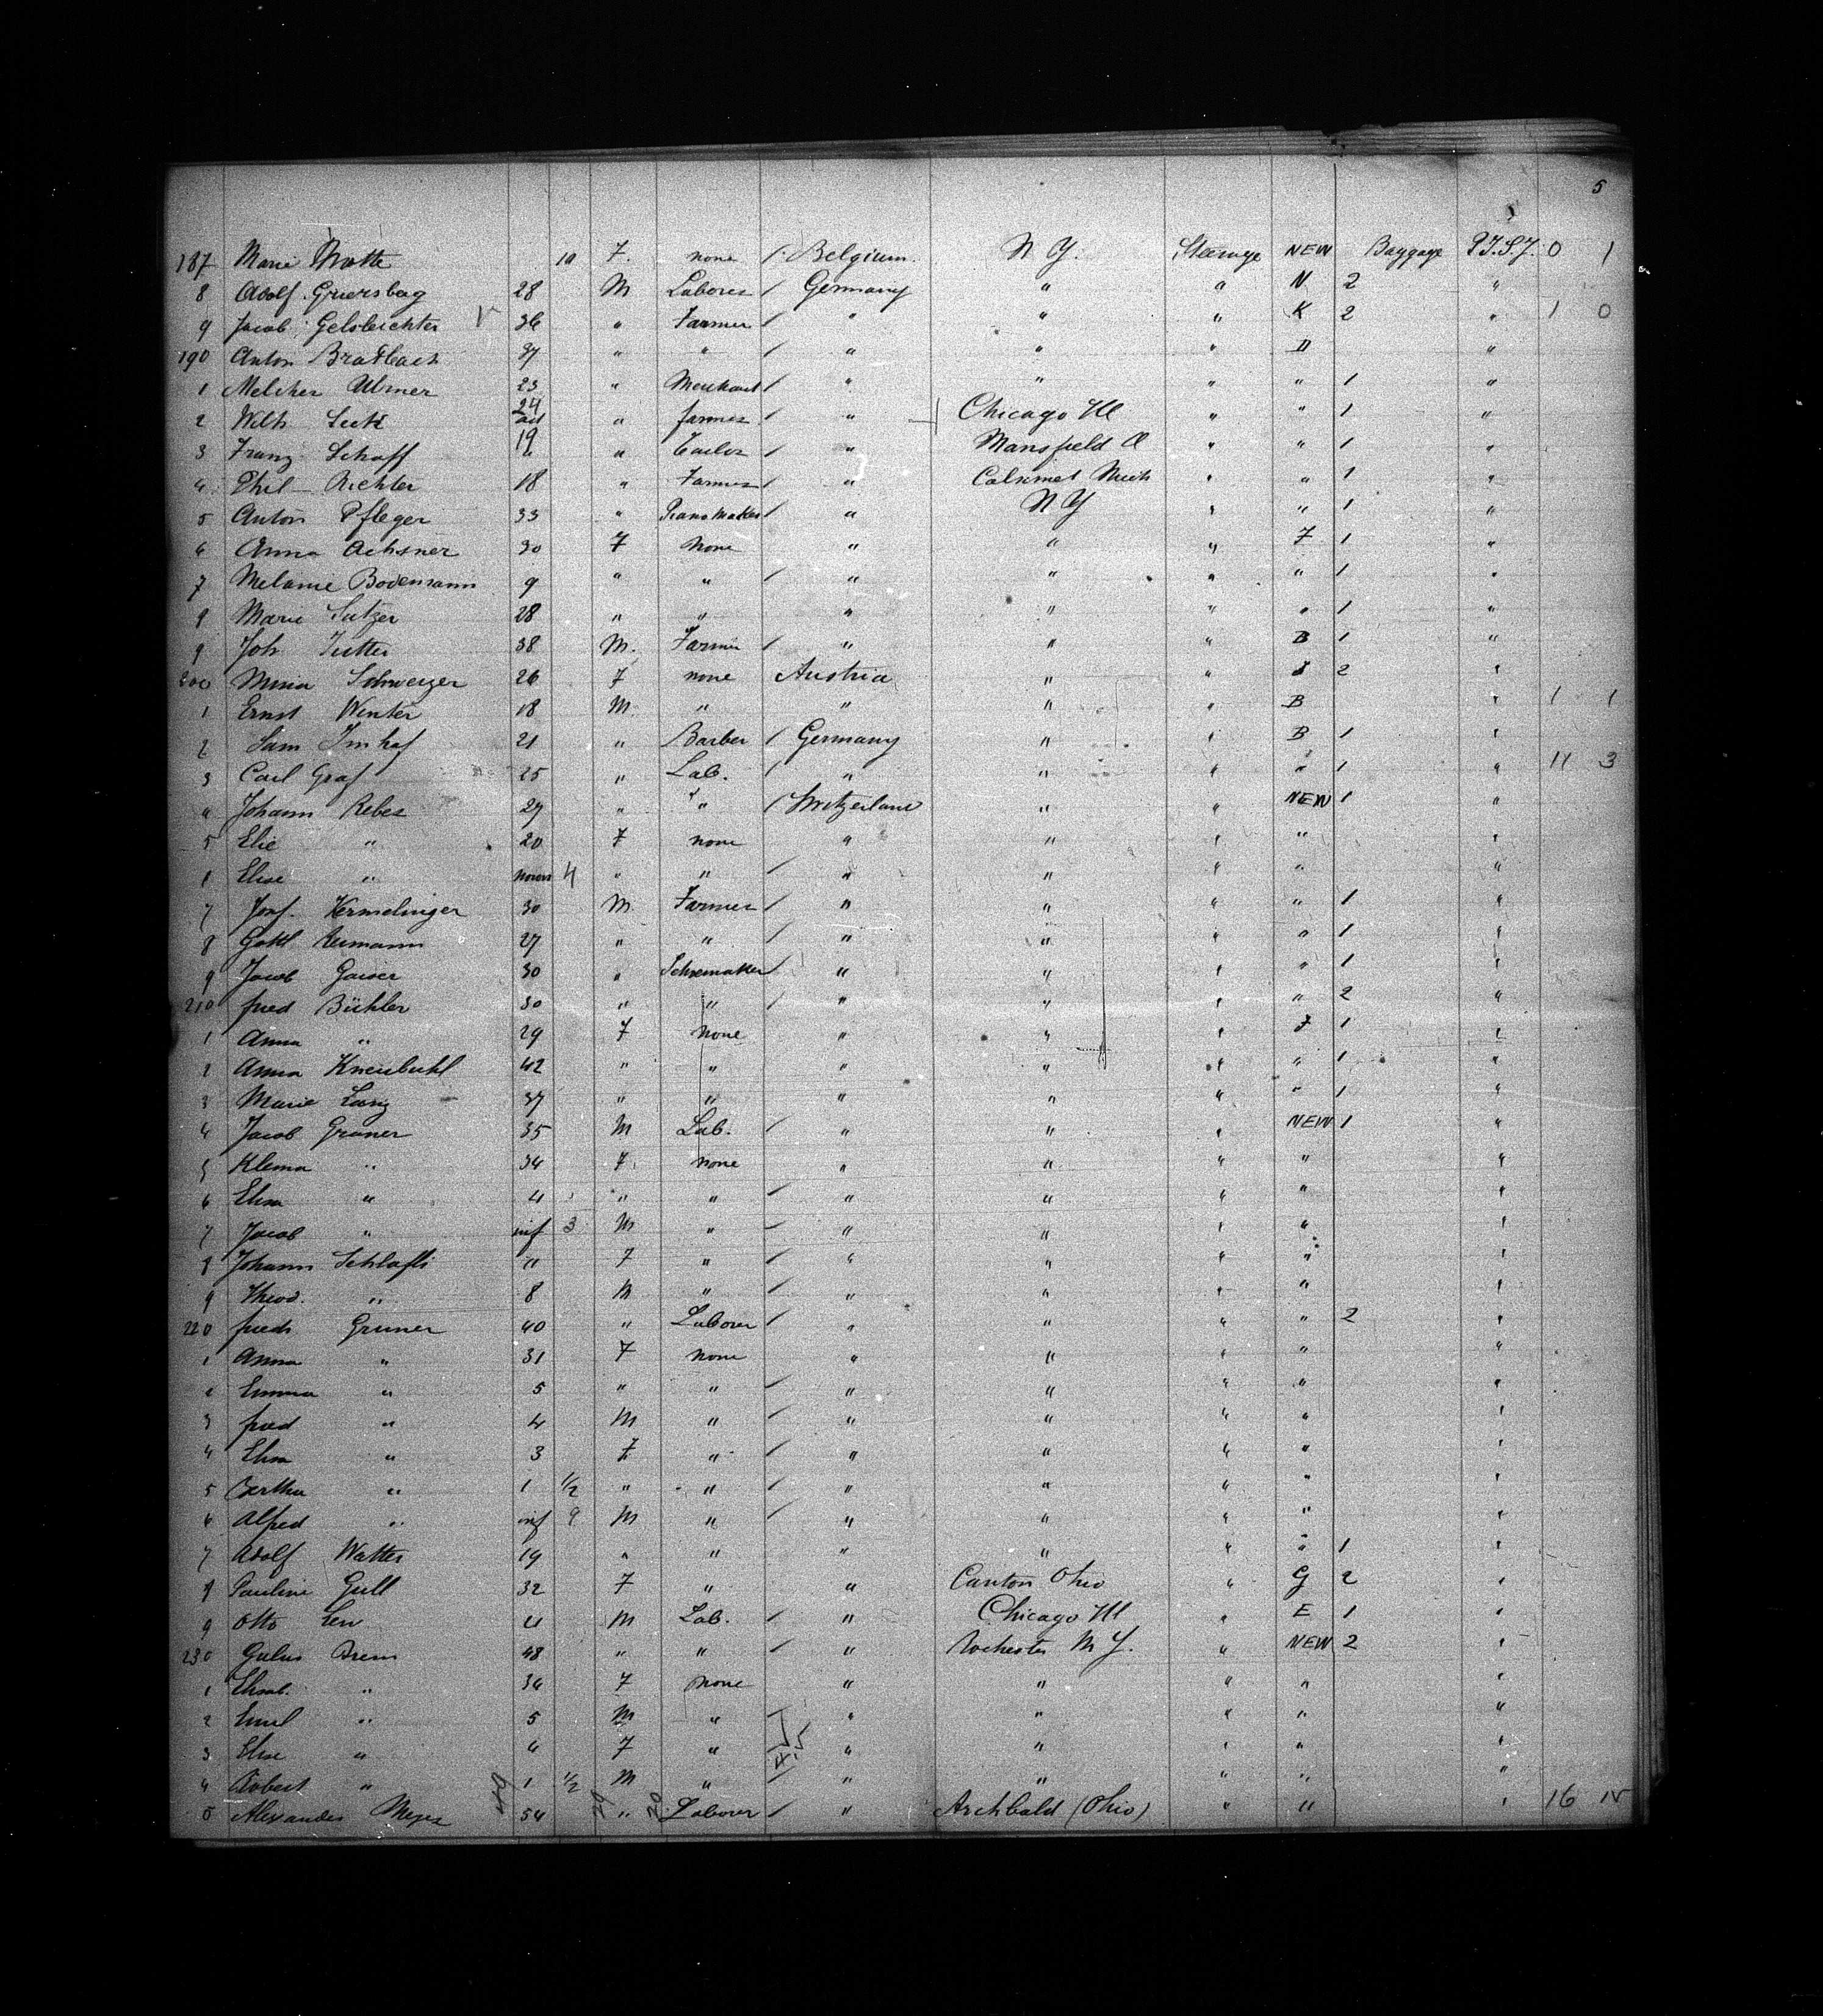 5
187 Marie Motte 10 F. none / Belgium. N Y. Steerage NEW Baggage P.T.S.J. 0 1
8 Adolf Griersbag 28 M Laborer / Germany " " N 2 "
9 Jacob Gelsleichter 36 " Farmer / " " " K 2 " 1 0
190 Anton Bratbach 37 " " / " " " D "
1 Melcher Ulmer 23 " Merchant / " " " " 1 "
2 Wilh 24 " farmer / " Chicago Ill " " 1 "
3 Franz Schaff 19 " Tailor / " Mansfield O " " 1 "
4 Phil Richter 18 " Farmer / " Calumet Mich " " 1 "
5 Anton Pfleger 33 " Pianomaker / " N Y " " 1 "
6 Anna Achsner 30 F None " " " F 1 "
7 Melanie Bodemann 9 " " / " " " " 1 "
8 Marie Sutzer 28 " " " " " " 1 "
9 Joh Tutter 38 M. Farmer / " " " B 1 "
200 Maria Schweizer 26 F none Austria " " 2 "
1 Ernst Winter 18 M " " " " B " 1 1
2 Sam Imhof 21 " Barber / Germany " " B 1 "
3 Carl Graf 25 " Lab. / " " " " 1 " 11 3
4 Johann Reber 27 " " / Switzerland " " NEW 1 "
5 Elie " 20 F none " " " " "
6 Elise " 4 " " / " " " " "
7 Josf. Kermelinger 30 M Farmer / " " " " 1 "
8 Gottl Neumann 27 " " / " " " " 1 "
9 Jacob Gaiser 30 " Schoemaker / " " " " 1 "
210 fred Bühler 30 " " / " " " " 2 "
1 Anna " 29 F none " " " F 1 "
2 Anna Kneubuhl 42 " " " " " " 1 "
3 Marie Lang 37 " " " " " " 1 "
4 Jacob Graner 35 M Lab. / " " " NEW 1 "
5 Klema " 34 F. none " " " " "
6 Elisa " 4 " " / " " " " "
7 Jacob " inf 3 M " / " " " " "
8 Johann Schlafli 11 F " / " " " " "
9 Theod. " 8 M " / " " " " "
220 fredr Gruner 40 " Laborer / " " " " 2 "
1 Anna " 31 F none " " " " "
2 Emma " 5 " " / " " " " "
3 fred " 4 M " / " " " " "
4 Elisa " 3 F " / " " " " "
5 Bertha " 1 1/2 " " / " " " " "
6 Alfred " inf 9 M " / " " " " "
7 Adolf Watter 19 " " " " " " 1 "
8 Pauline Gull 32 F " " Canton Ohio " G 2 "
9 Otto M Lab. / " Chicago Ill " E 1 "
230 Gulus Brem 48 " " / " Rochester N Y. " NEW 2 "
1 Elisab. " 34 F none " " " " "
2 Emil " 5 M " / " " " " "
3 Elise " 4 F " / " " " " "
4 Robert " 1 1/2 M " / " " " " "
5 Alexander Meyer 54 " Laborer / " Archbald (Ohio) " " " 16 15